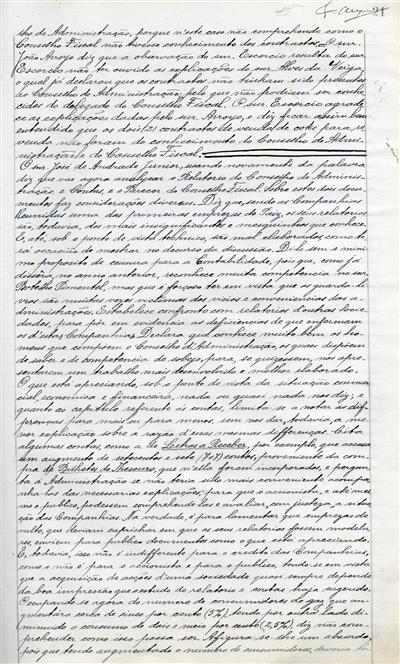 lho de Administração, porque n'este caso não comprehende como o
Conselho Fiscal não tivesse conhecimento dos contractos. O snr.
João Arroyo diz que a observação do snr. Escorcio resulta do snr.
Escorcio não ter ouvido as explicações do snr. Alves da Veiga,
o qual já declarou que os contractos não tinham sido presentes
ao Conselho de Administração, pelo que não podiam ser conhe-
cidos do delegado do Conselho Fiscal. O snr. Escorcio agrade-
ce as explicações dadas pelo snr. Arroyo, e diz ficar assim bem
entendido que os dois (2) contractos de venda de coke para re-
venda não foram do conhecimento do Conselho de Admi-
nistração e do Conselho Fiscal.
O snr. José de Andrade Junior, usando novamente da palavra
diz que vai agora analysar o Relatorio do Conselho de Adminis-
tração, e Contas, e o Parecer do Conselho Fiscal. Sobre estes dois docu-
mentos faz considerações diversas. Diz que, sendo as Companhias
Reunidas uma das primeiras emprezas do Paiz, os seus relatorios
são, todavia, dos mais insignificantes e mesquinhos que conhece.
E, até, sob o ponto de vista technico, são mal elaborados, como te-
rá occasião de mostrar no decurso da discussão. Dil-o sem o mini-
mo proposito de censura para a Contabilidade, pois que, como já
dissera, no anno anterior, reconhece muita competencia no snr.
Botelho Pimentel, mas que é forçoso ter em vista, que os guarda-li-
vros são muitas vezes victimas dos vicios e conveniencias das a-
dministrações. Estabelece confronto com relatorios d'outras Socie-
dades, para pôr em evidencia as deficiencias de que enfermam
os d'estas Companhias. Declara que conhece muito bem os ho-
mens que compõem o Conselho d'Administração, e que dispõem
de saber e de competencia de sobejo, para, se quizessem, nos apre-
sentarem um trabalho mais desenvolvido e melhor elaborado.
O que está apreciando, sob o ponto de vista da situação commer-
cial, economica e financeira, nada ou quasi nada nos diz; e
quanto ao capitulo referente ás contas, limita-se a notar as dif-
ferenças para mais ou para menos, sem nos dar, todavia, a me-
nor explicação sobre a razão d'essas mesmas differenças. Cita
algumas contas, como a de Letras a Receber, por exemplo, que accusa
um augmento de setecentos e sete (707) contos, proveniente da com-
pra de Bilhetes do Thesouro, que n'ella foram incorporados, e pergun-
ta á Administração se não teria sido mais conveniente acompa-
nhal-os das necessarias explicações, para que o accionista, e até mes-
mo o publico, podessem comprehendel-os e avaliar, com justiça, a situa-
ção das Companhias. Na verdade, é para lamentar que emprezas de
vulto, que deviam caprichar em que os seus relatorios fossem modela-
res, enviem para publico documentos como o que está apreciando.
E, todavia, isso não é indifferente para o credito das Companhias,
como o não é para o accionista e para o publico, tendo-se em vista
que a acquisição de acções d'uma sociedade quasi sempre depende
da boa impressão que o estudo do relatorio e contas haja sugerido.
Occupando-se agora do numero de consumidores do gaz que au-
gmentára como de cinco por cento (5%), tendo por outro lado di-
minuido o consumo de dois e meio por cento (2,5%), diz não com-
prehender como isso possa ser. Afigura-se-lhe um absurdo,
pois que tendo augmentado o numero de consumidores, deveria ha-